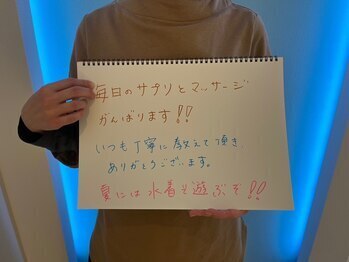 毎日のサプリとマッサージ
がんばります!!
いつも丁寧に教えて頂き、
ありがとうございます。
夏には水着で遊ぶぞ!!